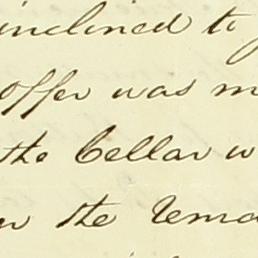 inclined to
offer was m
the Cellar w
the Rema